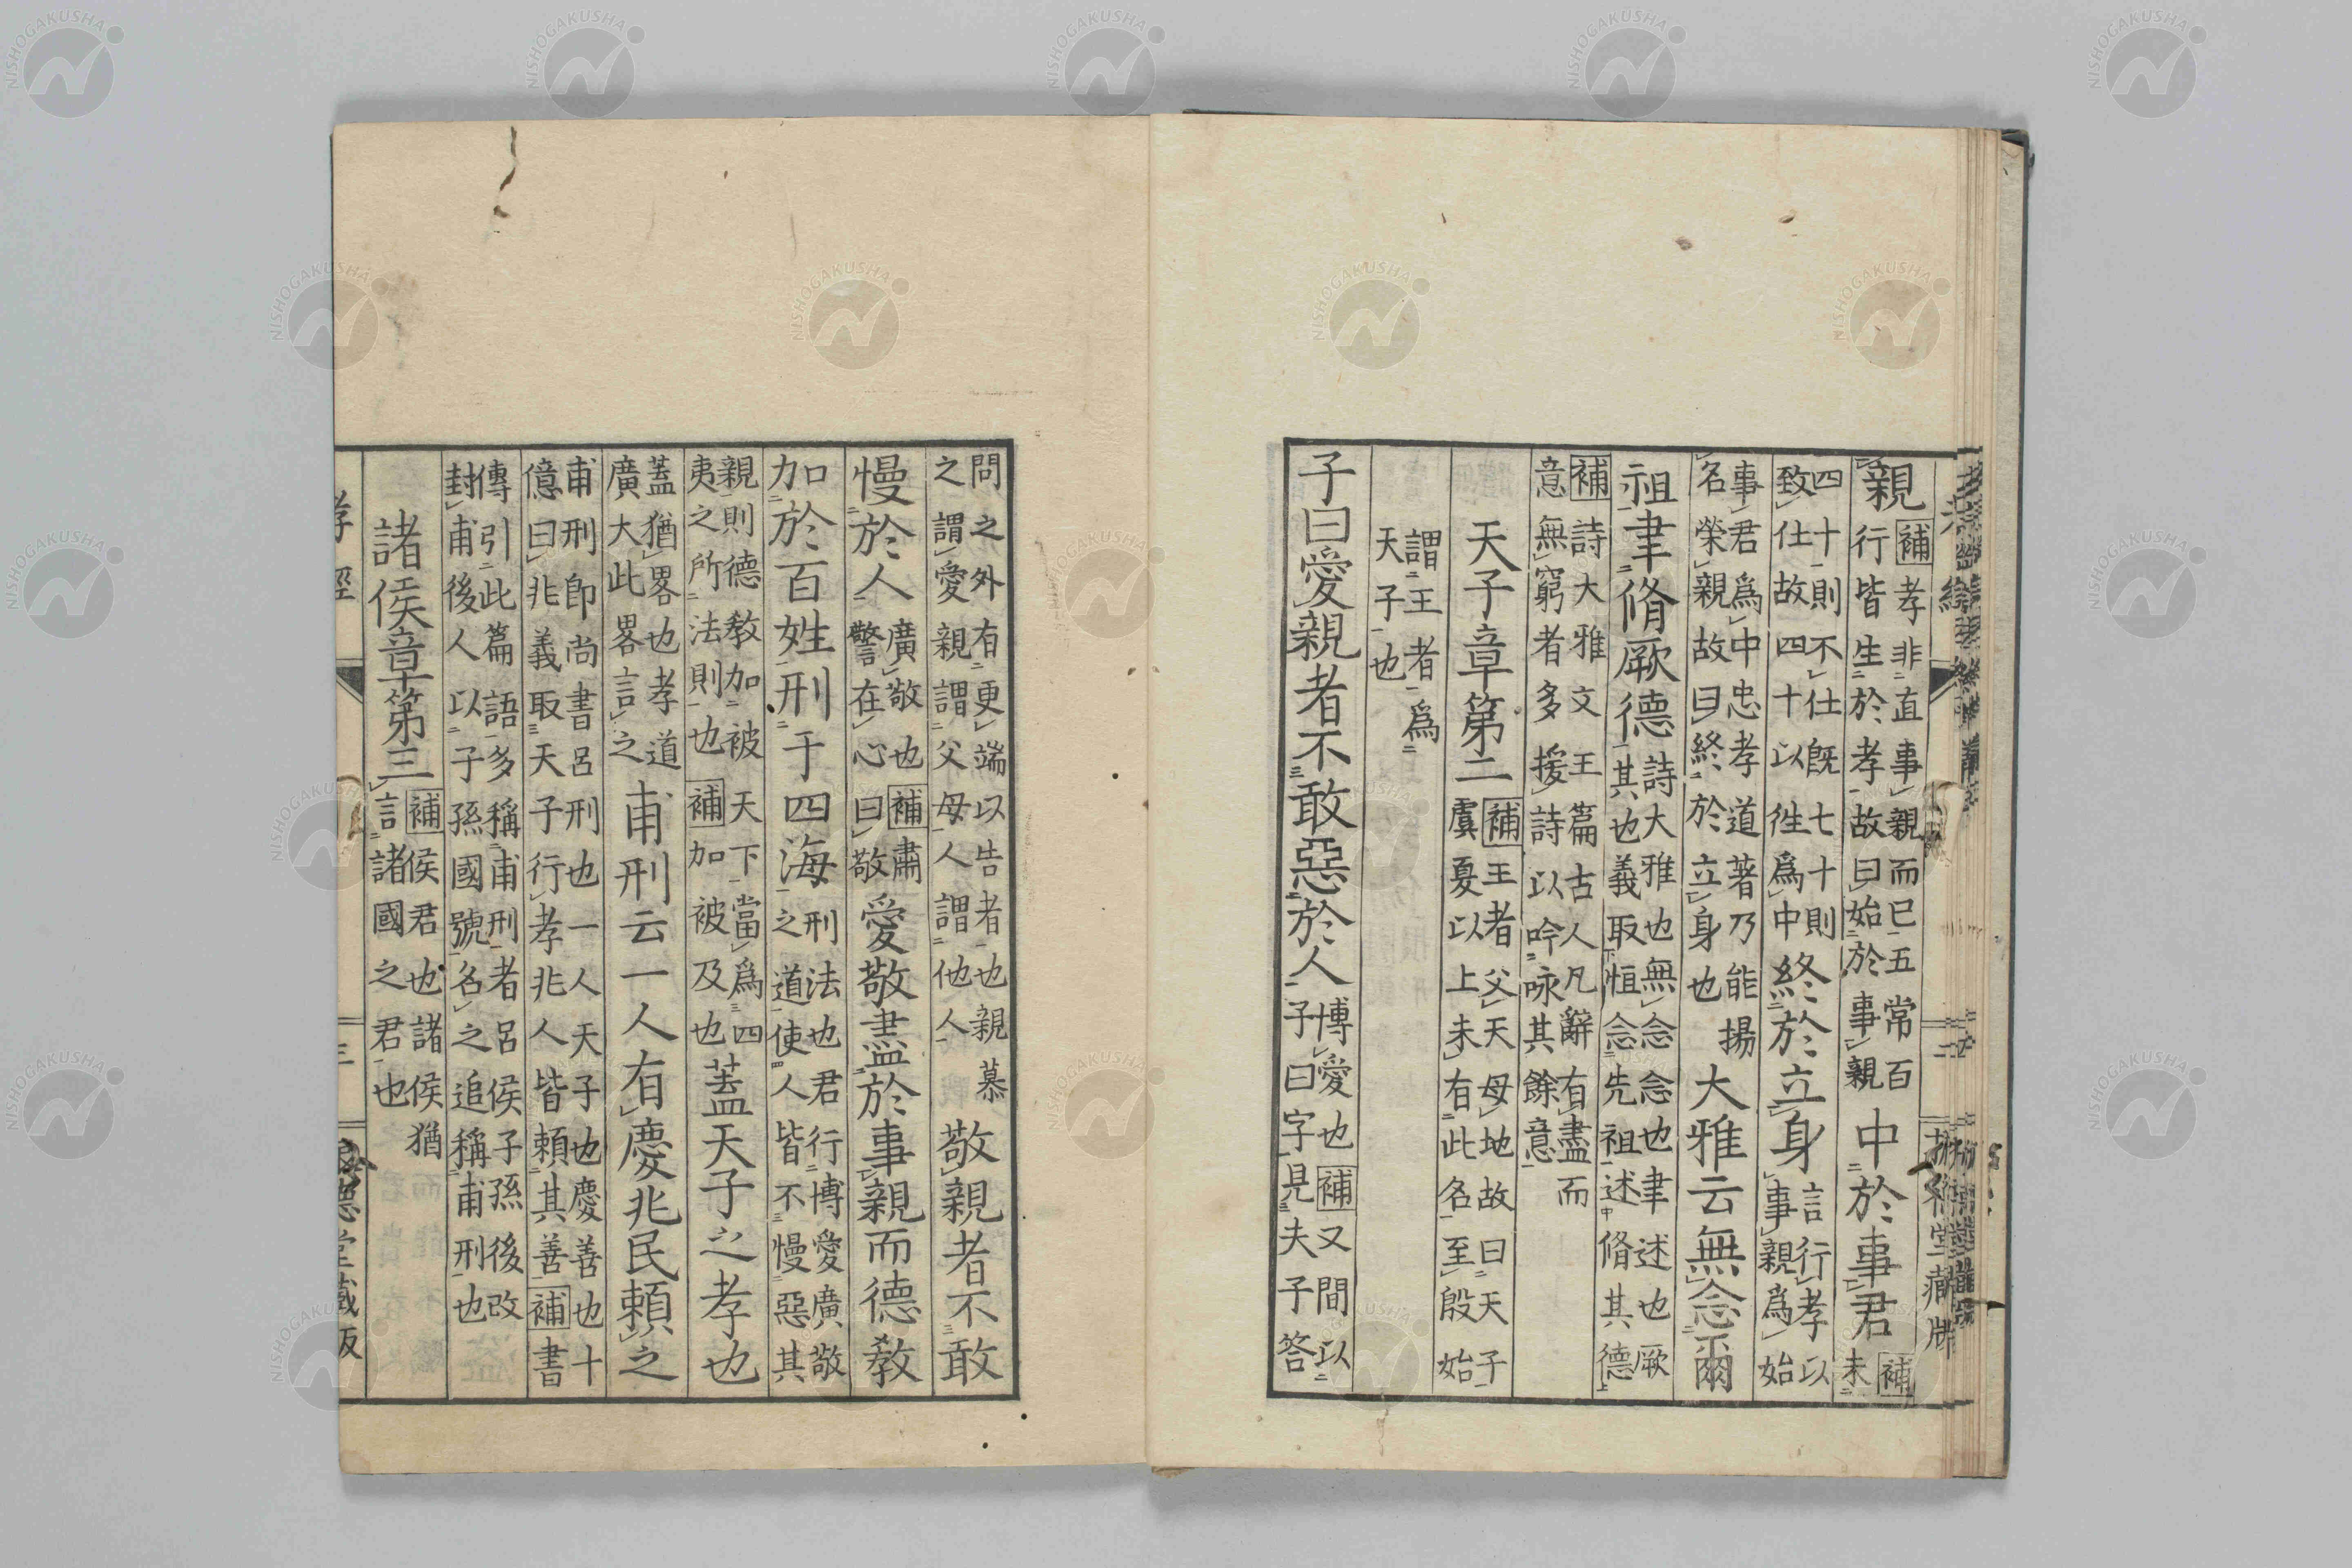 親 補孝非直事親而已五常百
行皆生於孝故曰始於事親
中於事君 補
未
四十則不仕既七十則
致仕故四十以徃爲中
終於立身 言行孝以
事親爲始
事君爲中忠孝道著乃能揚
名榮親故曰終於立身也
大雅云無念爾
祖聿脩厥德 詩大雅也無念念也聿述也厥
其也義取恒念先祖述脩其德
補詩大雅文王篇古人凡辭有盡而
意無窮者多援詩以吟咏其餘意
天子章第二 補王者父天母地故曰天子
虞夏以上未有此名至殷始
謂王者爲
天子也
子曰愛親者不敢惡於人 博愛也補又間以
子曰字見夫子答
問之外有更端以告者也親慕
之謂愛親謂父母人謂他人
敬親者不敢
慢於人 廣敬也補肅
警在心曰敬
愛敬盡於事親而德教
加於百姓刑于四海 刑法也君行博愛廣敬
之道使人皆不慢惡其
親則德教加被天下當爲四
夷之所法則也補加被及也
蓋天子之孝也
蓋猶畧也孝道
廣大此畧言之
甫刑云一人有慶兆民賴之
甫刑即尚書呂刑也一人天子也慶善也十
億曰兆義取天子行孝兆人皆賴其善補書
傳引此篇語多稱甫刑者呂侯子孫後改
封甫後人以子孫國號名之追稱甫刑也
諸侯章第三 補侯君也諸侯猶
言諸國之君也
孝經 三 德堂藏版
NISHOGAKUSHA